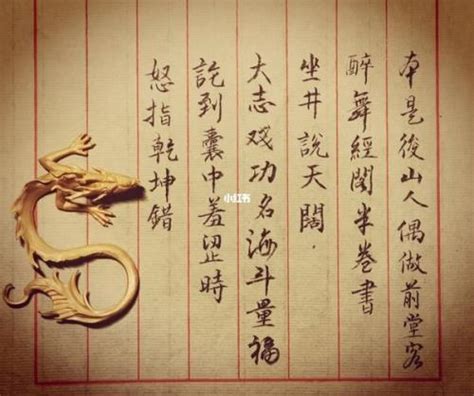 本是後山人偶做前堂客
醉舞經閣半卷書
坐井說天闊.
大志戏功名海斗量福
訖到囊中羞澀時
怒指乾坤錯
小红书